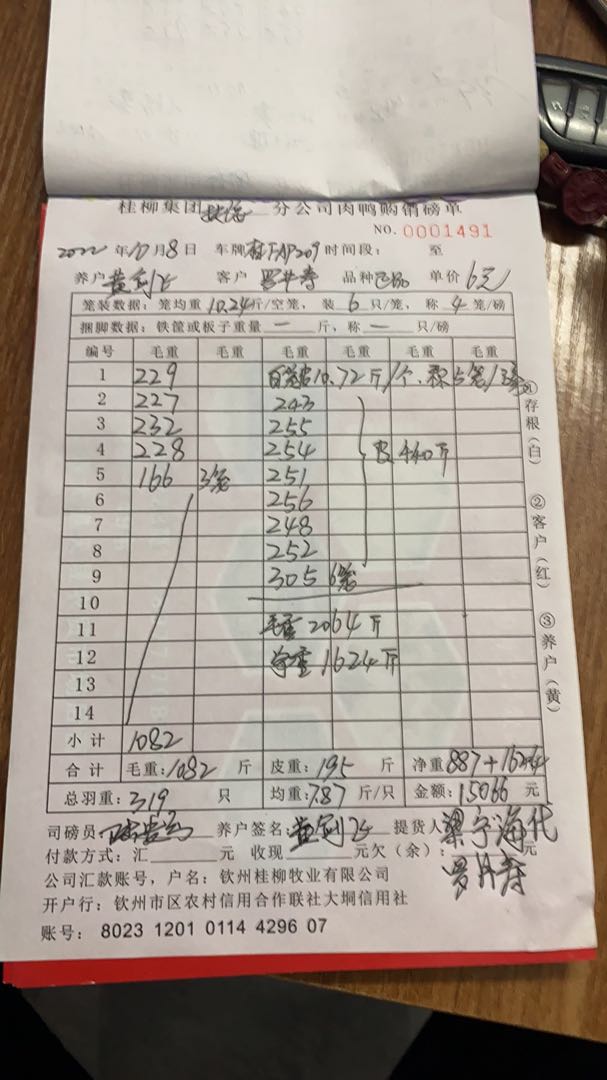 桂柳集团 分公司肉鸭购销磅单
NO. 0001491
2022 年 10 月 8 日 车牌 桂FAP209 时间段： 至
养户 黄剑飞 客户 品种 单价 6元
笼装数据：笼均重 10.24 斤/空笼，装 6 只/笼，称 4 笼/磅
捆脚数据：铁筐或板子重量 一 斤，称 一 只/磅
编号 毛重 毛重 毛重 毛重 毛重 毛重
1 229 10.72斤/个.
2 227 243
3 232 255
4 228 254 皮440斤
5 166 3笼 251
6 256
7 248
8 252
9 305 6笼
10
11 毛重 2064斤
12 净重 1624斤
13
14
小计 1082
合计 毛重：1082 斤 皮重：195 斤 净重 887+1624
总羽重：319 只 均重：7.87 斤/只 金额：15066 元
司磅员 养户签名：黄剑飞 提货人 梁宇海代
付款方式：汇 元 收现 元欠（余）： 元
公司汇款账号，户名：钦州桂柳牧业有限公司
开户行：钦州市区农村信用合作联社大垌信用社
账号： 8023 1201 0114 4296 07
①存根（白）
②客户（红）
③养户（黄）